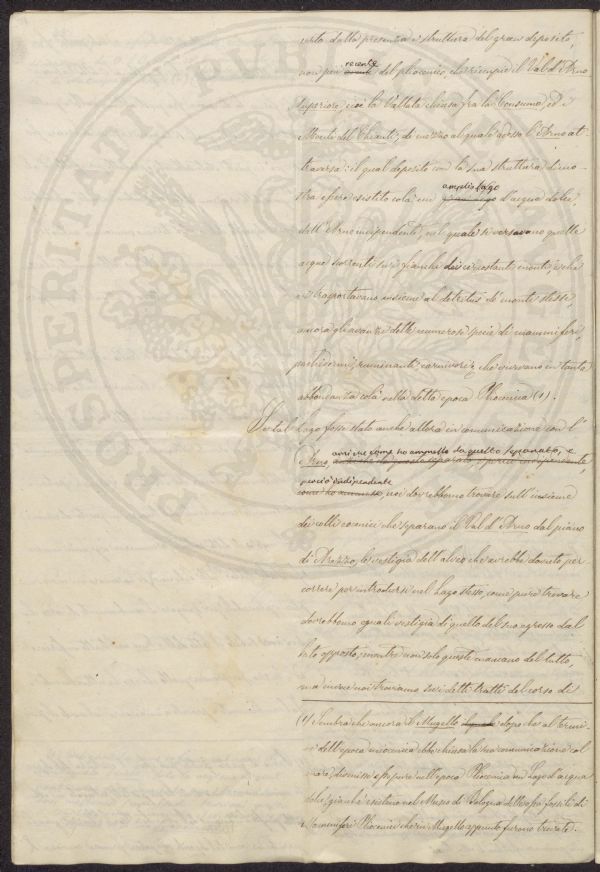 certo dalla presenza e struttura del gran deposito,
non pur recente del pliocenico, che riempie il Val d'Arno
superiore, cioè la Vallata chiusa fra la Consuma, ed i
Monti del Chianti, di mezzo al quale adesso l'Arno at-
traversa: il qual deposito con la sua struttura dimo-
stra essere esistito colà un amplio lago d'acqua dolce,
dall'Arno indipendente, nel quale si versavano quelle
acque scorrenti sui fianchi dei circostanti monti, e che
vi trasportavano insieme al detritus de' monti stessi,
ancora gli avanzi delle numerose specie di mammiferi,
pachidermi, ruminanti, carnivori, che vivevano in tanta
abbondanza colà nella detta epoca Pliocenica (1).
Se tal Lago fosse stato anche allora in comunicazione con l'
Arno, anziché come ho ammesso da quello separato, e
perciò indipendente
noi dovrebbemo trovare sull'insieme
dei colli eocenici che separano il Val d'Arno dal piano
di Arezzo, le vestigia dell'alveo che avrebbe dovuto per-
correre per introdursi nel Lago stesso, come pure trovare
dovrebbemo eguali vestigia di quello del suo egresso dal
lato opposto, mentre non solo queste mancano del tutto,
ma invece noi troviamo sui detti tratti del corso di
(1) Sembra che ancora il Mugello dopo che al termi-
ne dell'epoca miocenica ebbe chiusa la sua comunicazione col
mare, divenisse esso pure nell'epoca Pliocenica un Lago d'acqua
dolce, giacché esistono nel Museo di Bologna dell'ossa fossili di
Mammiferi Pliocenici che in Mugello appunto furono trovate.
PROSPERITATI PUBL